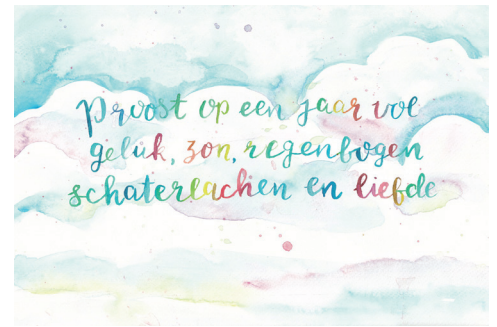 Proost op een jaar vol
geluk, zon, regenbogen
schaterlachen en liefde